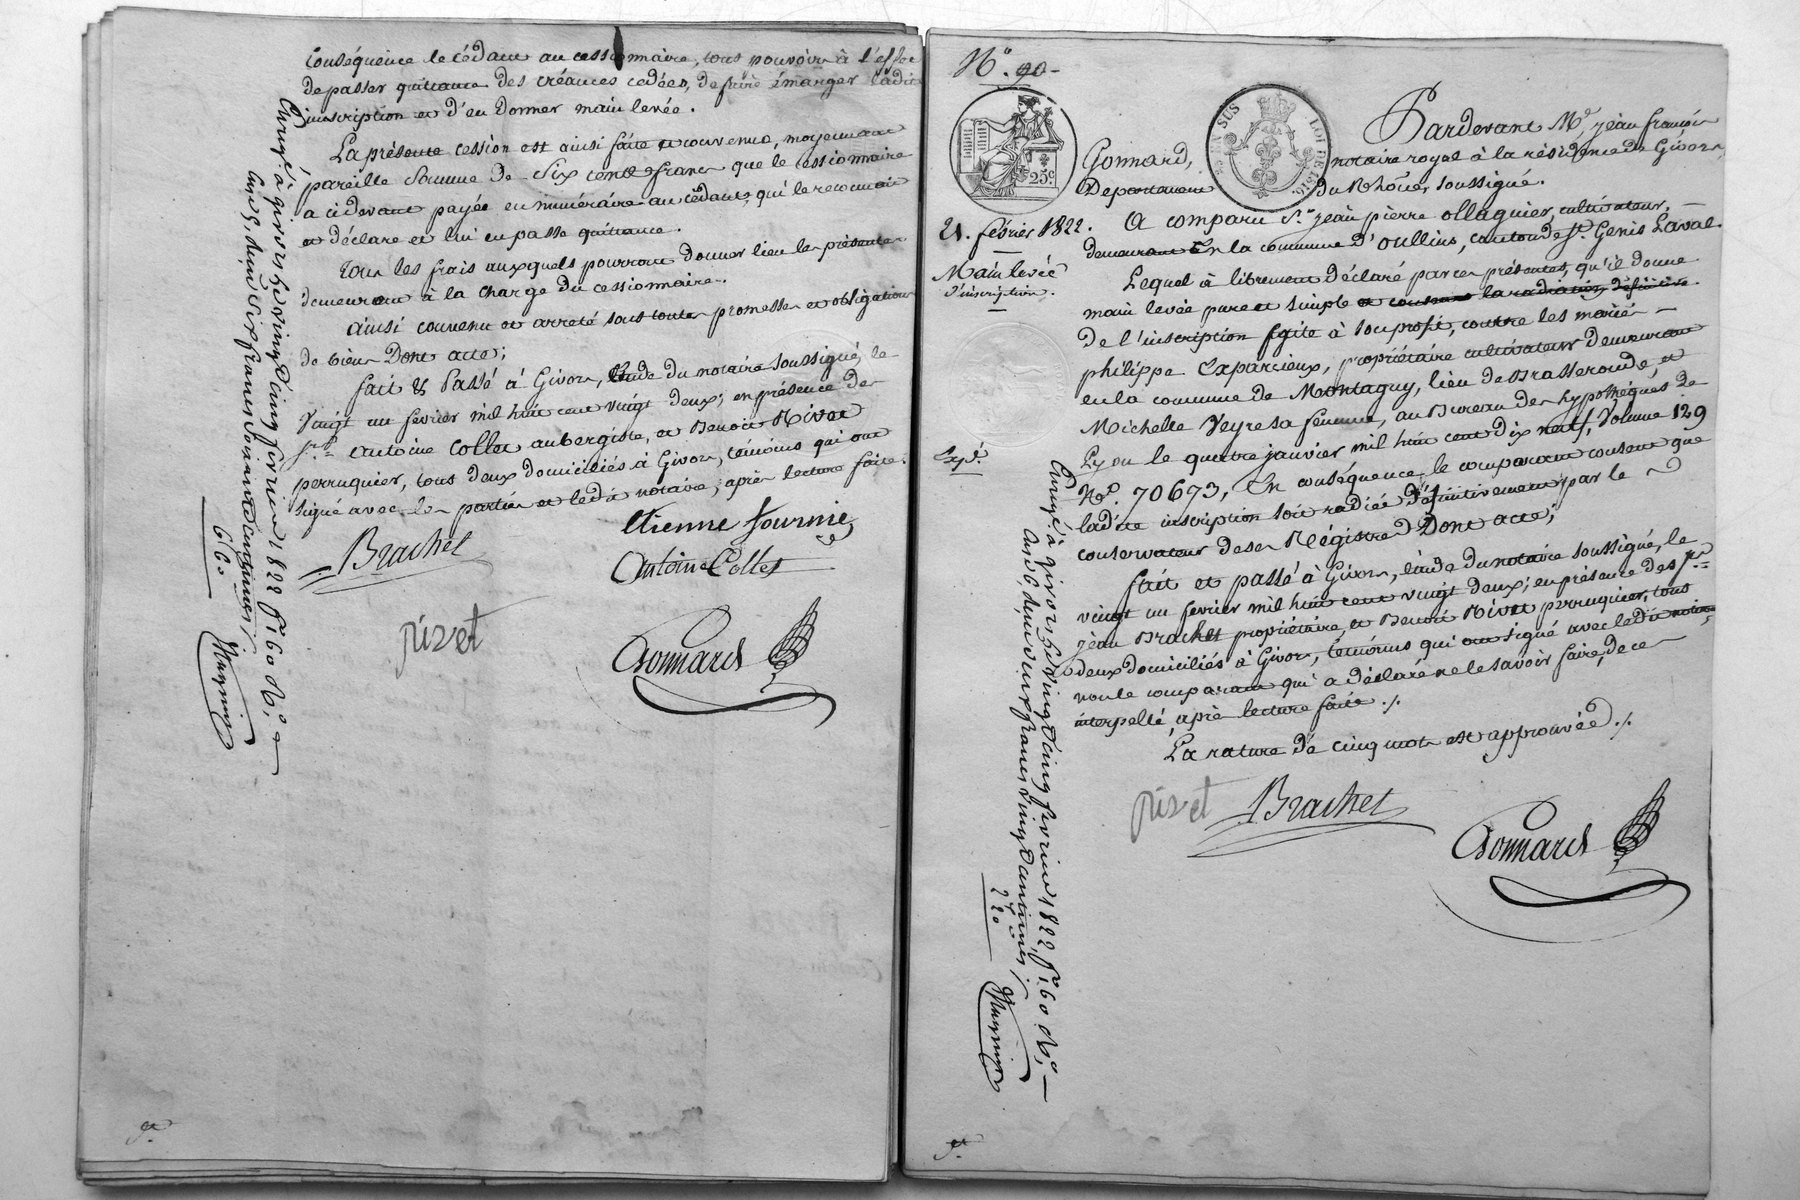 Conséquence le cédant au cessionnaire, tous pouvoirs à l'effet
de passer quittance des créances cédées, de faire émarger ladite
inscription et d'en donner main levée.
La présente cession est ainsi faite et convenue, moyennant
pareille somme de Six cents francs que le cessionnaire
a cidevant payée en numéraire au cédant, qui le reconnait
et déclare et lui en passe quittance.
Tous les frais auxquels pourront donner lieu les présentes
demeurent à la charge du cessionnaire.
ainsi convenu et arreté sous toutes promesses et obligations
de biens Dont acte;
fait & Passé à Givors, Etude du notaire soussigné, le
vingt un fevrier mil huit cent vingt deux; en présence des
Srs. antoine Collet aubergiste, et Benoit Rivet
perruquier, tous deux domiciliés à Givors, témoins qui ont
signé avec les parties et ledit notaire, après lecture faite.
Etienne fournie
Brachet
Antoine Collet
Rivet
Gonnard
Enrgé. à givors le vingt cinq fevrier 1822 f° 60 R°,
six francs soixante centimes
6 60
N°. 90
25c
SUS
LOI DE 1816
Pardevant Me. jean françois
Gonnard, notaire royal à la résidence de Givors,
Departement du Rhône, soussigné.
21. févriér 1822.
Main levée
d'inscription.
Expé.
A comparu Sr. jean pierre ollagnier, cultivateur,
demeurant En la commune d'oullins, canton de St. Genis Laval.
Lequel à librement déclaré par ces présentes, qu'il donne
main levée pure et simple et consent la radiation définitive
de l'inscription faite à son profit, contre les mariés
philippe Exparcieux, propriétaire cultivateur demeurant
en la commune de Montagny, lieu de Brasseronde, et
Michelle Veyre sa femme, au Bureau des hypothèques de
Lyon le quatre janvier mil huit cent dix neuf, Volume 129
No. 70673, En conséquence le comparant consent que
ladite inscription soit radiée définitivement par le
conservateur de ses Régistres Dont acte;
fait et passé à Givors, étude du notaire soussigné, le
vingt un fevrier mil huit cent vingt deux; en présence des Srs.
jean Brachet propriétaire, et Benoit Rivet perruquier, tous
deux domiciliés à Givors, témoins qui ont signé avec ledit notaire,
non le comparant qui a déclaré ne le savoir faire, de ce
interpellé, après lecture faite ./.
La rature de cinq mots est approuvée ./.
Rivet
Brachet
Gonnard
Enrgé. à givors le vingt cinq fevrier 1822, f° 60 R°,
deux francs vingt centimes
2 20